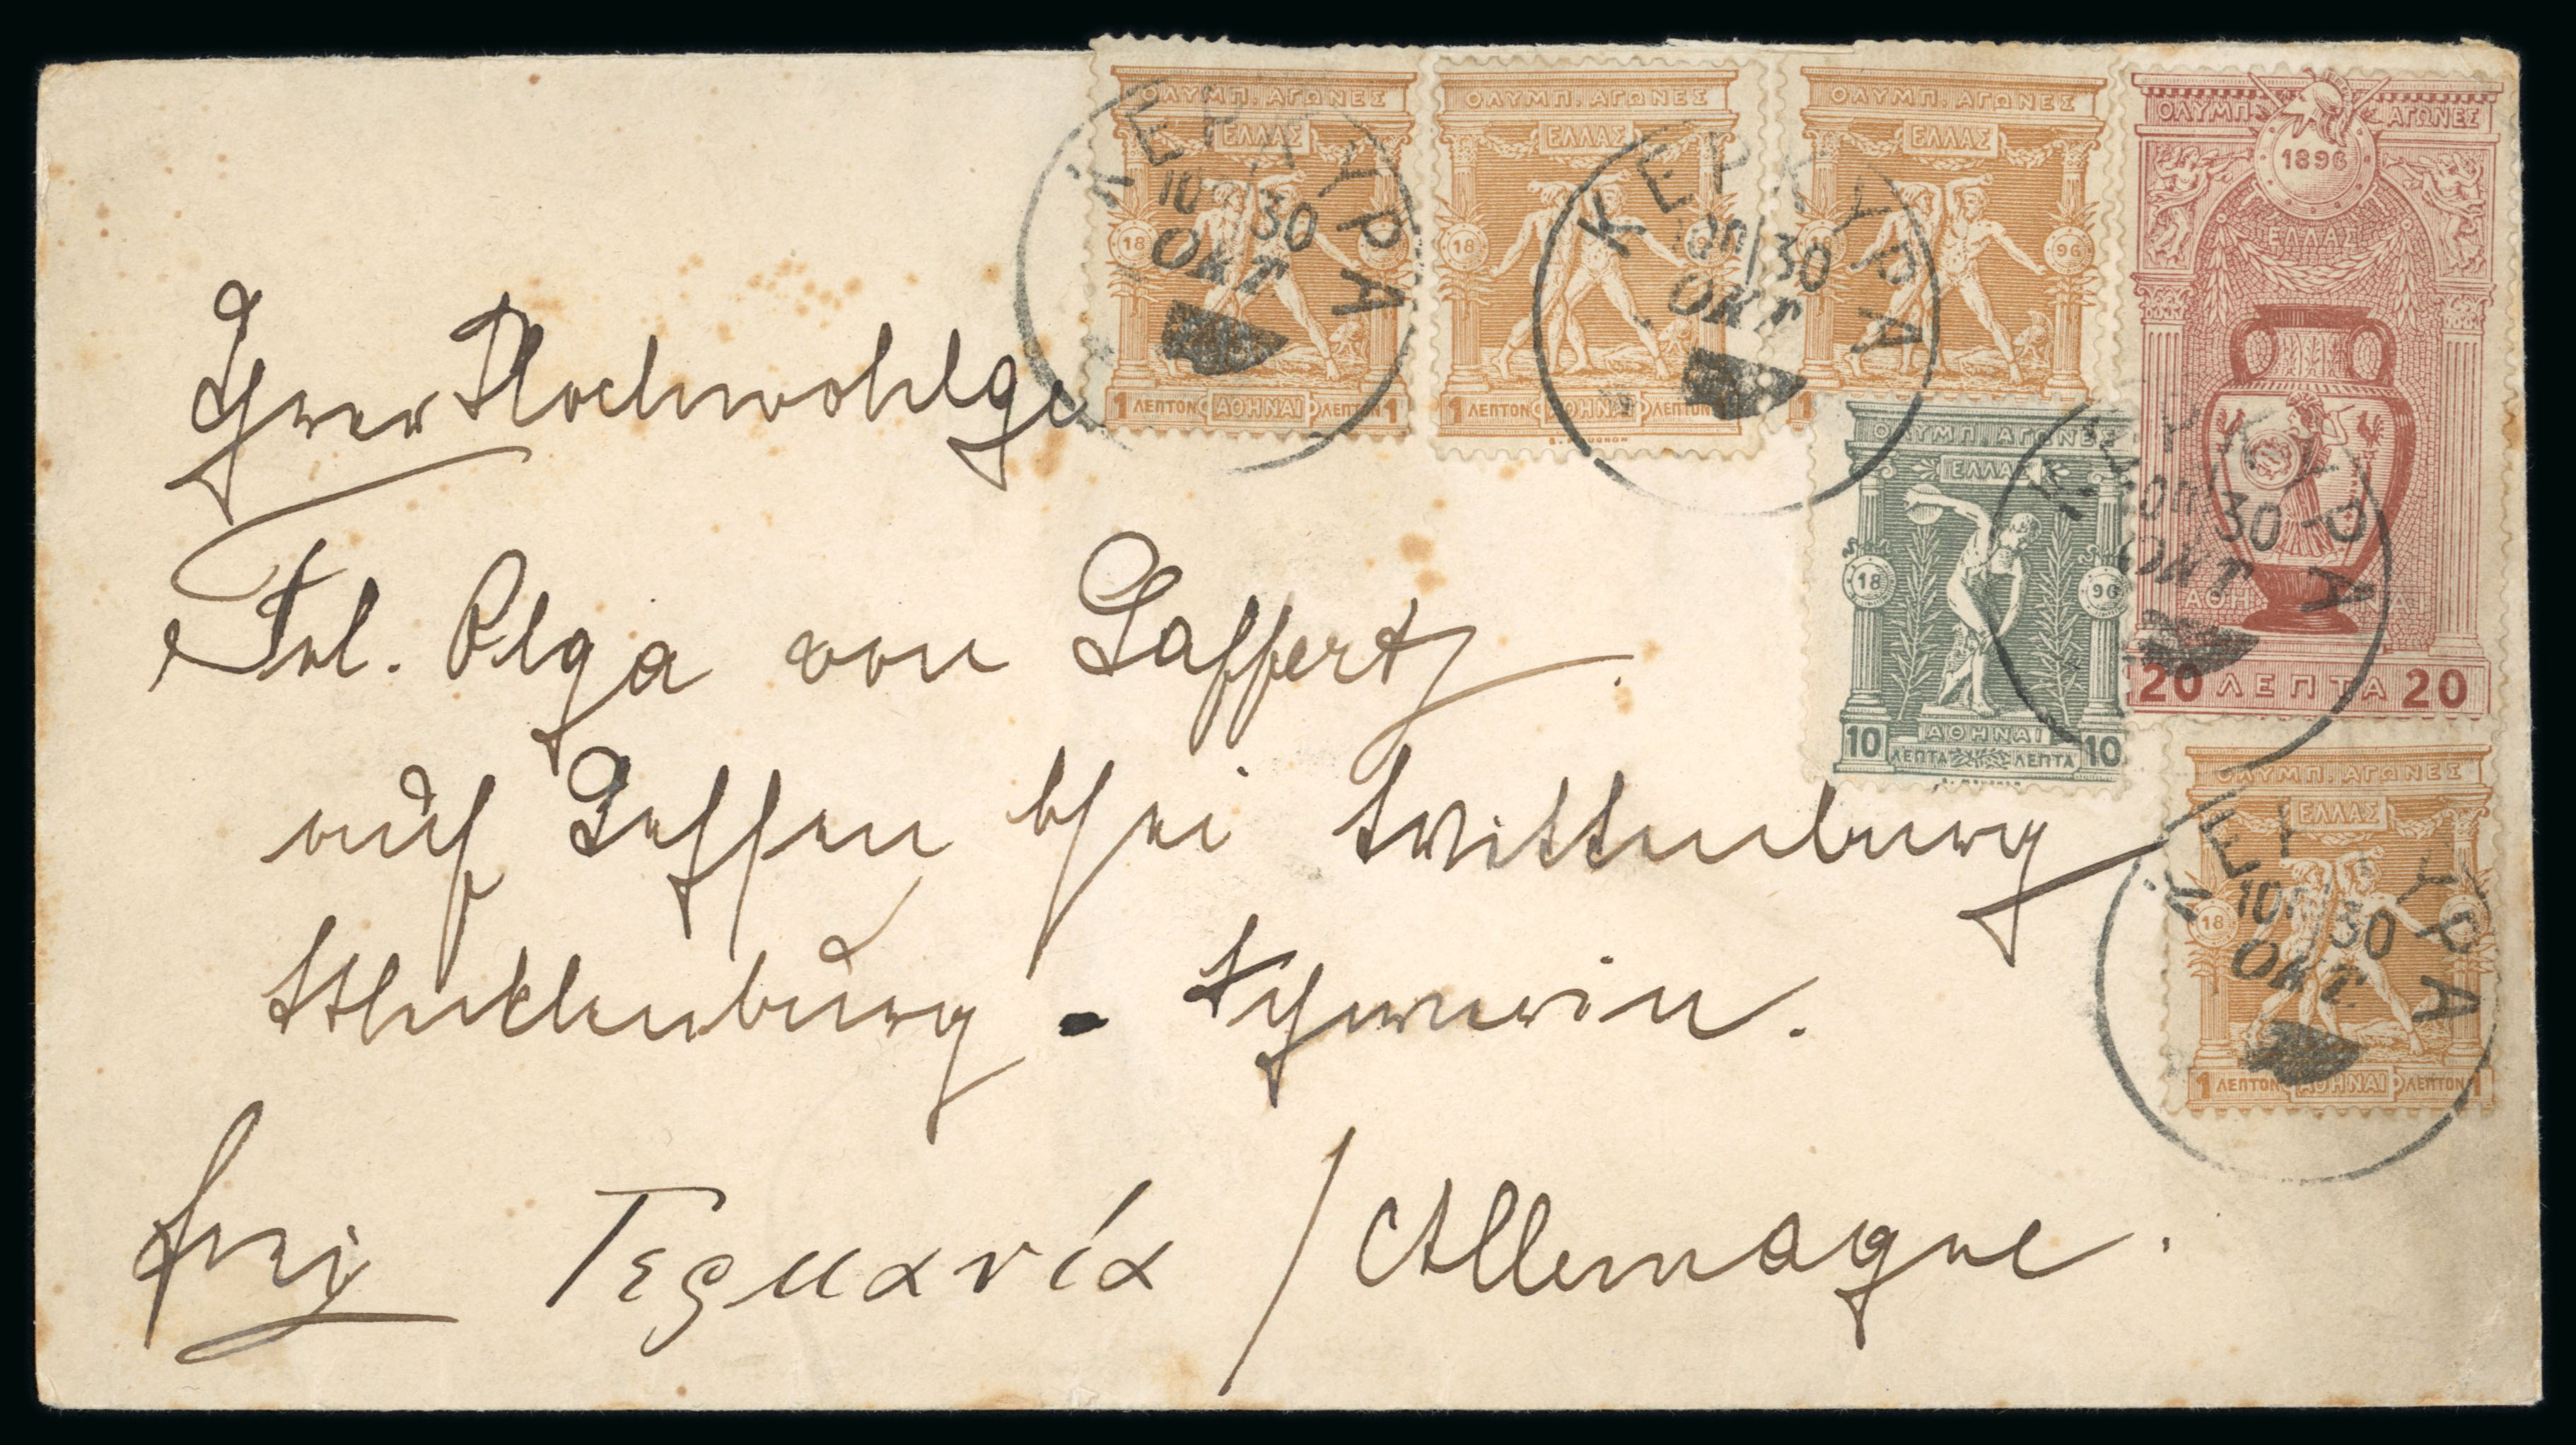 Ihrer Hochwohlge
Frl. Olga von Laffert
auf Leſſen bei Wittenburg
Mecklenburg - Schwerin.
frei Γερμανία / Allemagne.
ΟΛΥΜΠ. ΑΓΩΝΕΣ
ΕΛΛΑΣ
18
1 ΛΕΠΤΟΝ ΑΘΗΝΑΙ ΛΕΠΤΟΝ 1
ΚΕΡΚΥΡΑ
30
ΟΚΤ
ΟΛΥΜΠ. ΑΓΩΝΕΣ
ΕΛΛΑΣ
18 9
1 ΛΕΠΤΟΝ ΑΘΗΝΑΙ ΛΕΠΤΟΝ
ΚΕΡΚΥΡΑ
30
ΟΚΤ
ΟΛΥΜΠ. ΑΓΩΝΕΣ
ΕΛΛΑΣ
96
1
ΟΛΥΜΠ ΑΓΩΝΕΣ
1896
ΕΛΛΑΣ
ΑΘΗΝΑΙ
20 ΛΕΠΤΑ 20
ΚΕΡΚΥΡΑ
30
ΟΚΤ
ΟΛΥΜΠ. ΑΓΩΝΕΣ
ΕΛΛΑΣ
18 96
ΑΘΗΝΑΙ
10 ΛΕΠΤΑ ΛΕΠΤΑ 10
ΟΛΥΜΠ. ΑΓΩΝΕΣ
ΕΛΛΑΣ
18
1 ΛΕΠΤΟΝ ΑΘΗΝΑΙ ΛΕΠΤΟΝ 1
ΚΕΡΚΥΡΑ
30
ΟΚΤ